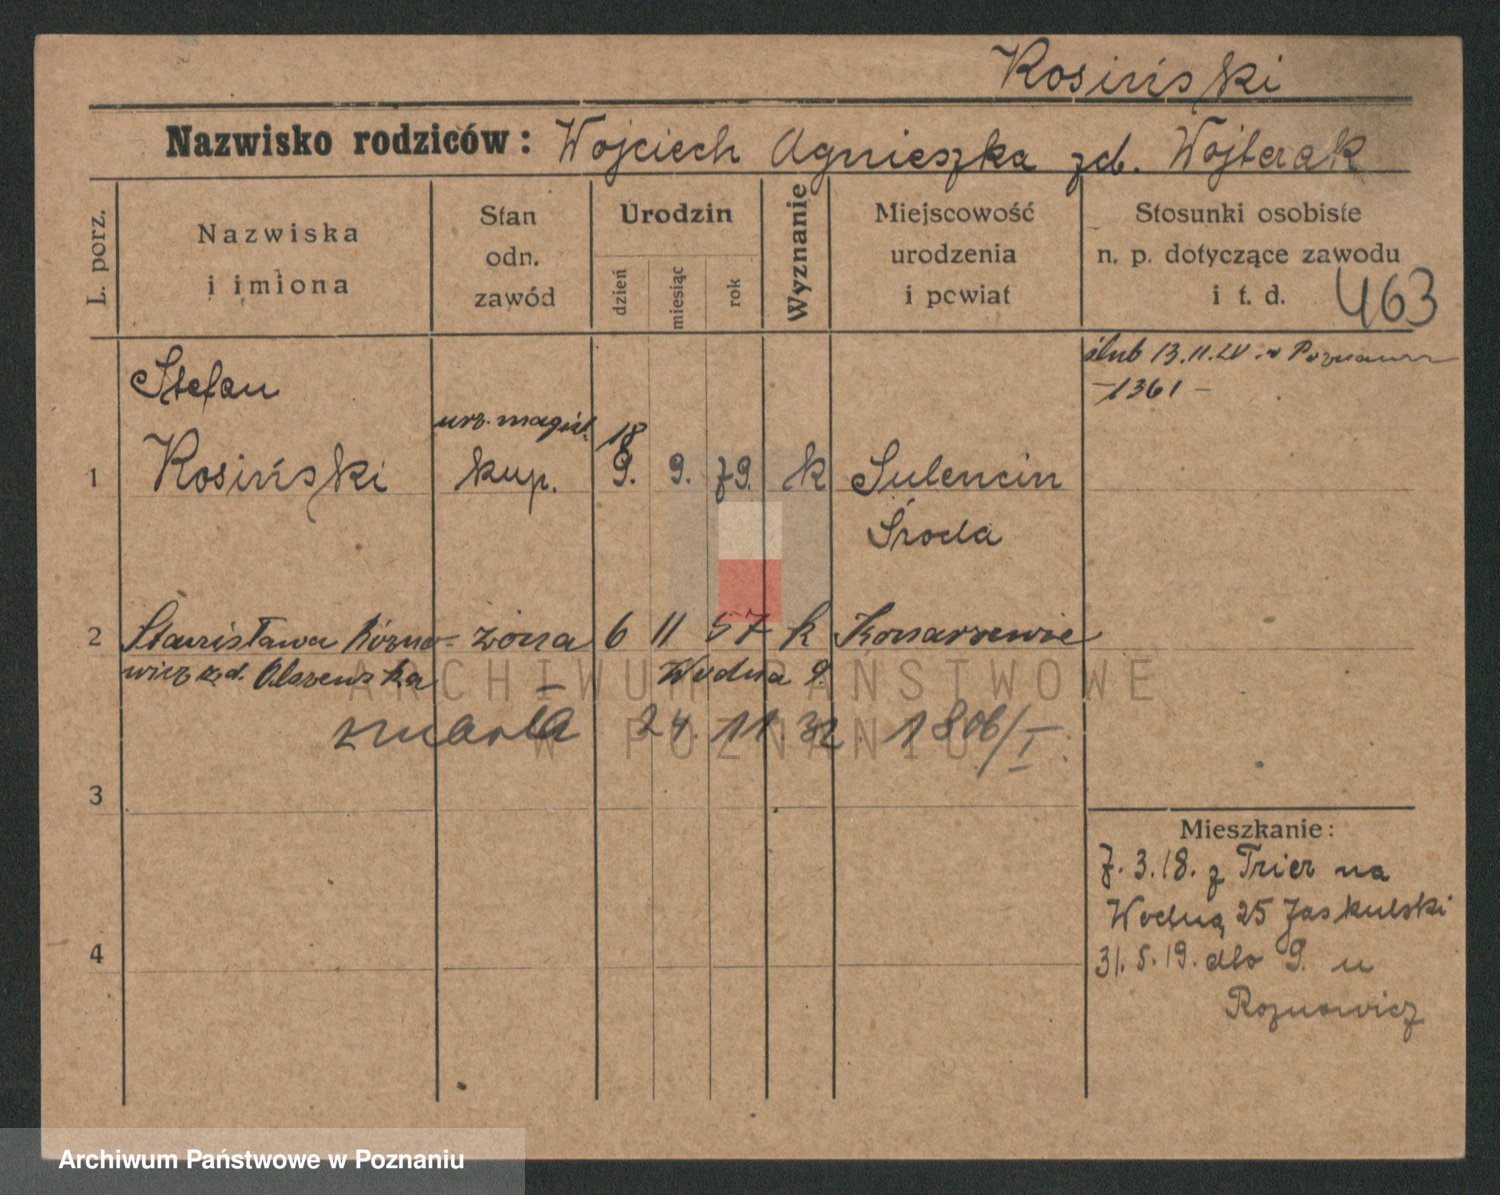 Kosiński
Nazwisko rodziców: Wojciech Agnieszka zd. Wojterak
L. porz.
Nazwiska
i imiona
Stan
odn.
zawód
Urodzin
dzień
miesiąc
rok
Wyznanie
Miejscowość
urodzenia
i powiat
Stosunki osobiste
n. p. dotyczące zawodu
i t. d.
463
ślub 13.11.20 w Poznaniu
-1361-
1
Stefan
Kosiński
urz. magist.
kup.
18
9. 9. 79. k
Sulencin
Środa
2
Stanisława Rózno-
wicz zd. Olszewska
żona 6 11 57 k Konarzewie
Wodna 9.
zmarła 24. 11 32 1806/I
3
4
Mieszkanie:
7.3.18. z Trier na
Wodną 25 Jaskulski
31.5.19. dto 9. u
Roznowicz
ARCHIWUM PAŃSTWOWE
W POZNANIU
Archiwum Państwowe w Poznaniu